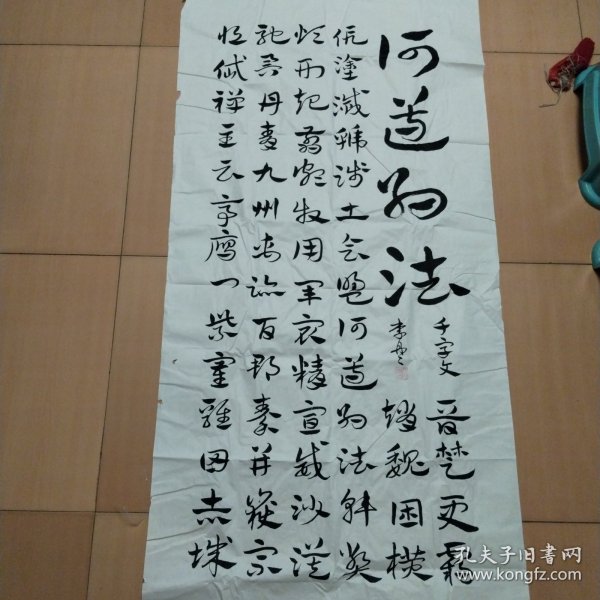 何遵約法
千字文
晉楚更霸
趙魏困橫
假塗滅虢踐土會盟何遵約法韓弊
煩刑起翦頗牧用軍最精宣威沙漠
馳譽丹青九州禹跡百郡秦并嶽宗
恒岱禪主云亭雁門紫塞雞田赤城
孔夫子旧书网
www.kongfz.com